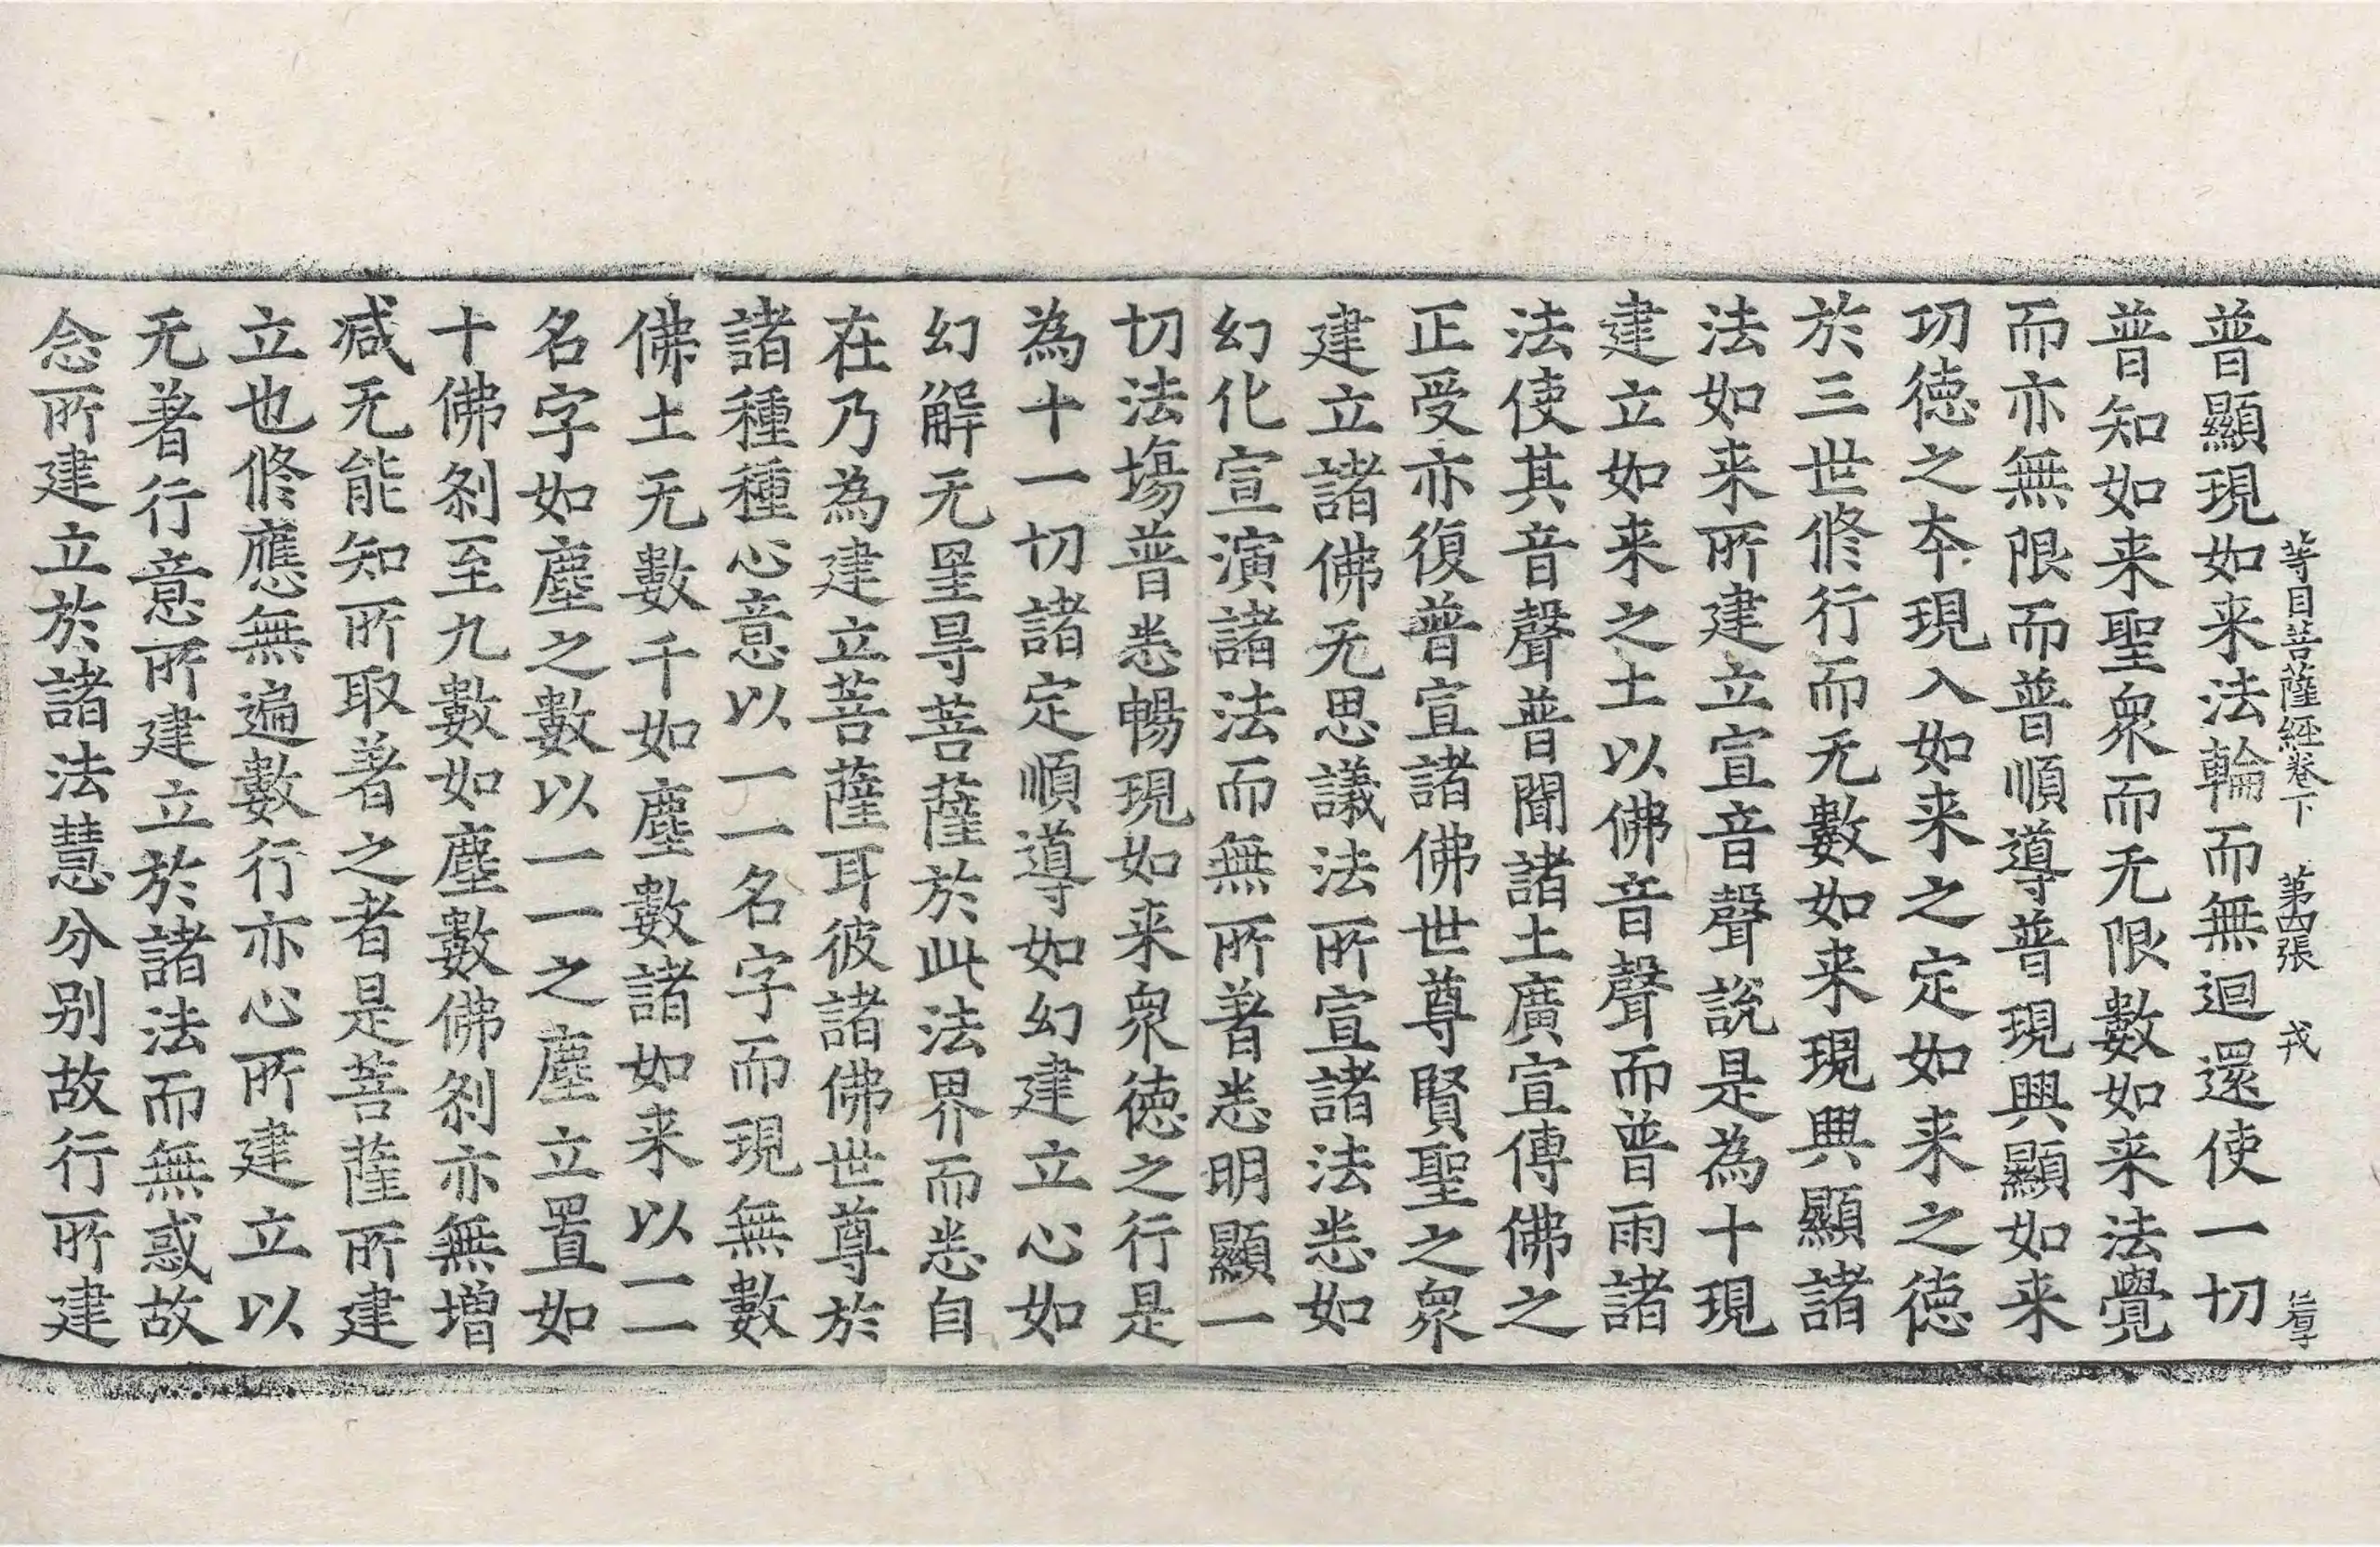 等目菩薩經卷下 第四張 戎
普顯現如来法輪而無迴還使一切
普知如来聖衆而无限數如来法覺
而亦無限而普順導普現興顯如来
切徳之本現入如来之定如来之徳
於三世修行而无數如来現興顯諸
法如来所建立宣音聲說是為十現
建立如来之土以佛音聲而普雨諸
法使其音聲普聞諸土廣宣傳佛之
正受亦復普宣諸佛世尊賢聖之衆
建立諸佛无思議法所宣諸法悉如
幻化宣演諸法而無所著悉明顯一
切法塲普悉暢現如来衆徳之行是
為十一切諸定順導如幻建立心如
幻解无量㝵菩薩於此法界而悉自
在乃為建立菩薩耳彼諸佛世尊於
諸種種心意以一一名字而現無數
佛土无數千如塵數諸如来以一一
名字如塵之數以一一之塵立置如
十佛刹至九數如塵數佛刹亦無增
减无能知所取著之者是菩薩所建
立也修應無遍數行亦心所建立以
无著行意所建立於諸法而無惑故
念所建立於諸法慧分别故行所建